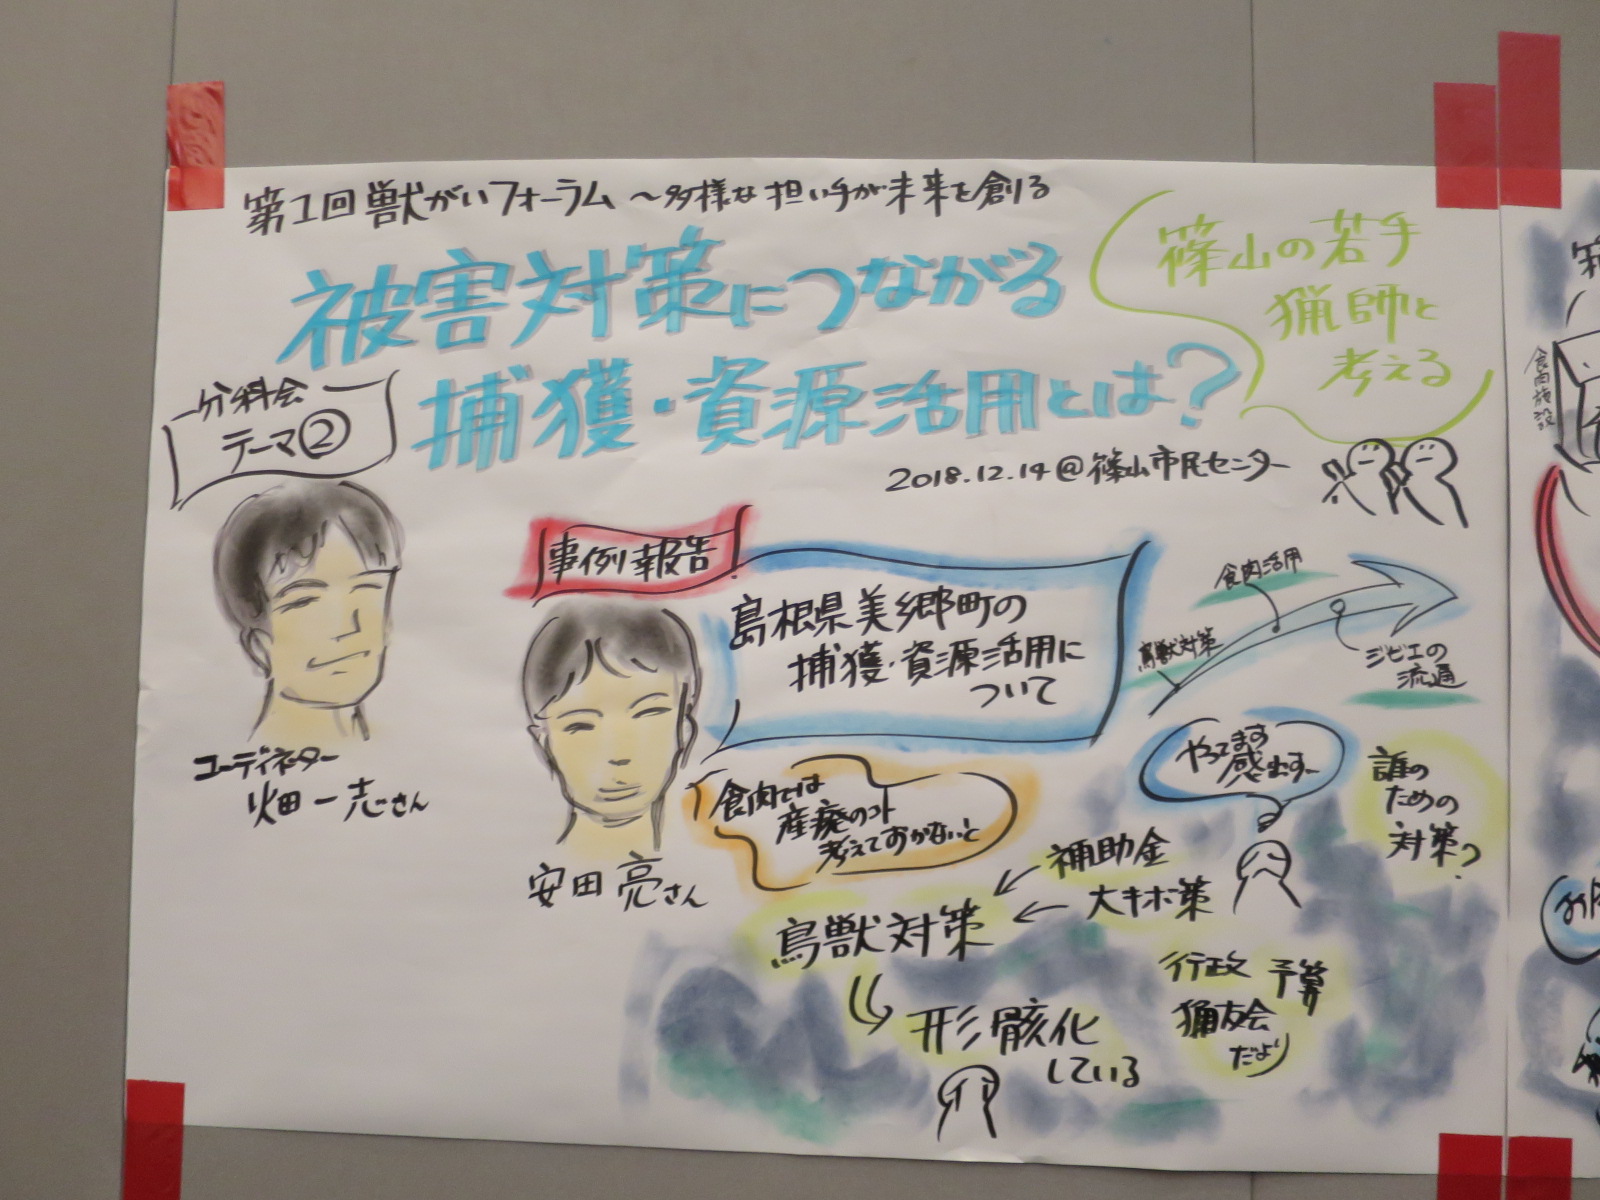 第1回獣がいフォーラム ～多様な担い手が未来を創る
被害対策につながる
捕獲・資源活用とは?
篠山の若手
猟師と
考える
分科会
テーマ②
2018.12.14@篠山市民センター
コーディネーター
畑田一志さん
事例報告
島根県美郷町の
捕獲・資源活用に
ついて
安田亮さん
食肉活用
鳥獣対策
ジビエの
流通
食肉では
産廃のコト
考えておかないと
やってます
感出すー
誰の
ための
対策?
補助金
大キボ策
鳥獣対策
形骸化
している
行政 予算
猟友会
だより
食肉施設